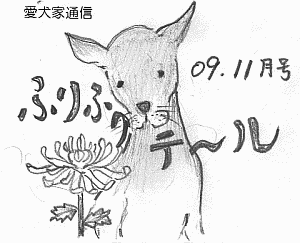 愛犬家通信
09.11月号
ふりふりテ〜ル